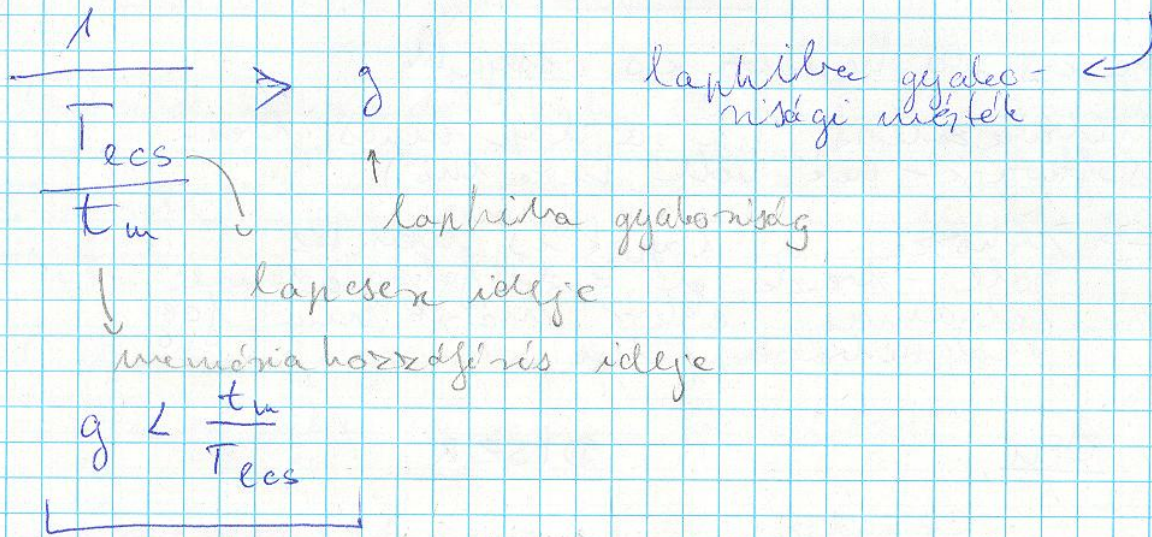 1
> g
laphiba gyako-
risági mérték
Tecs
tm
laphiba gyakoriság
lapcsere ideje
memória hozzáférés ideje
g < tm
Tecs